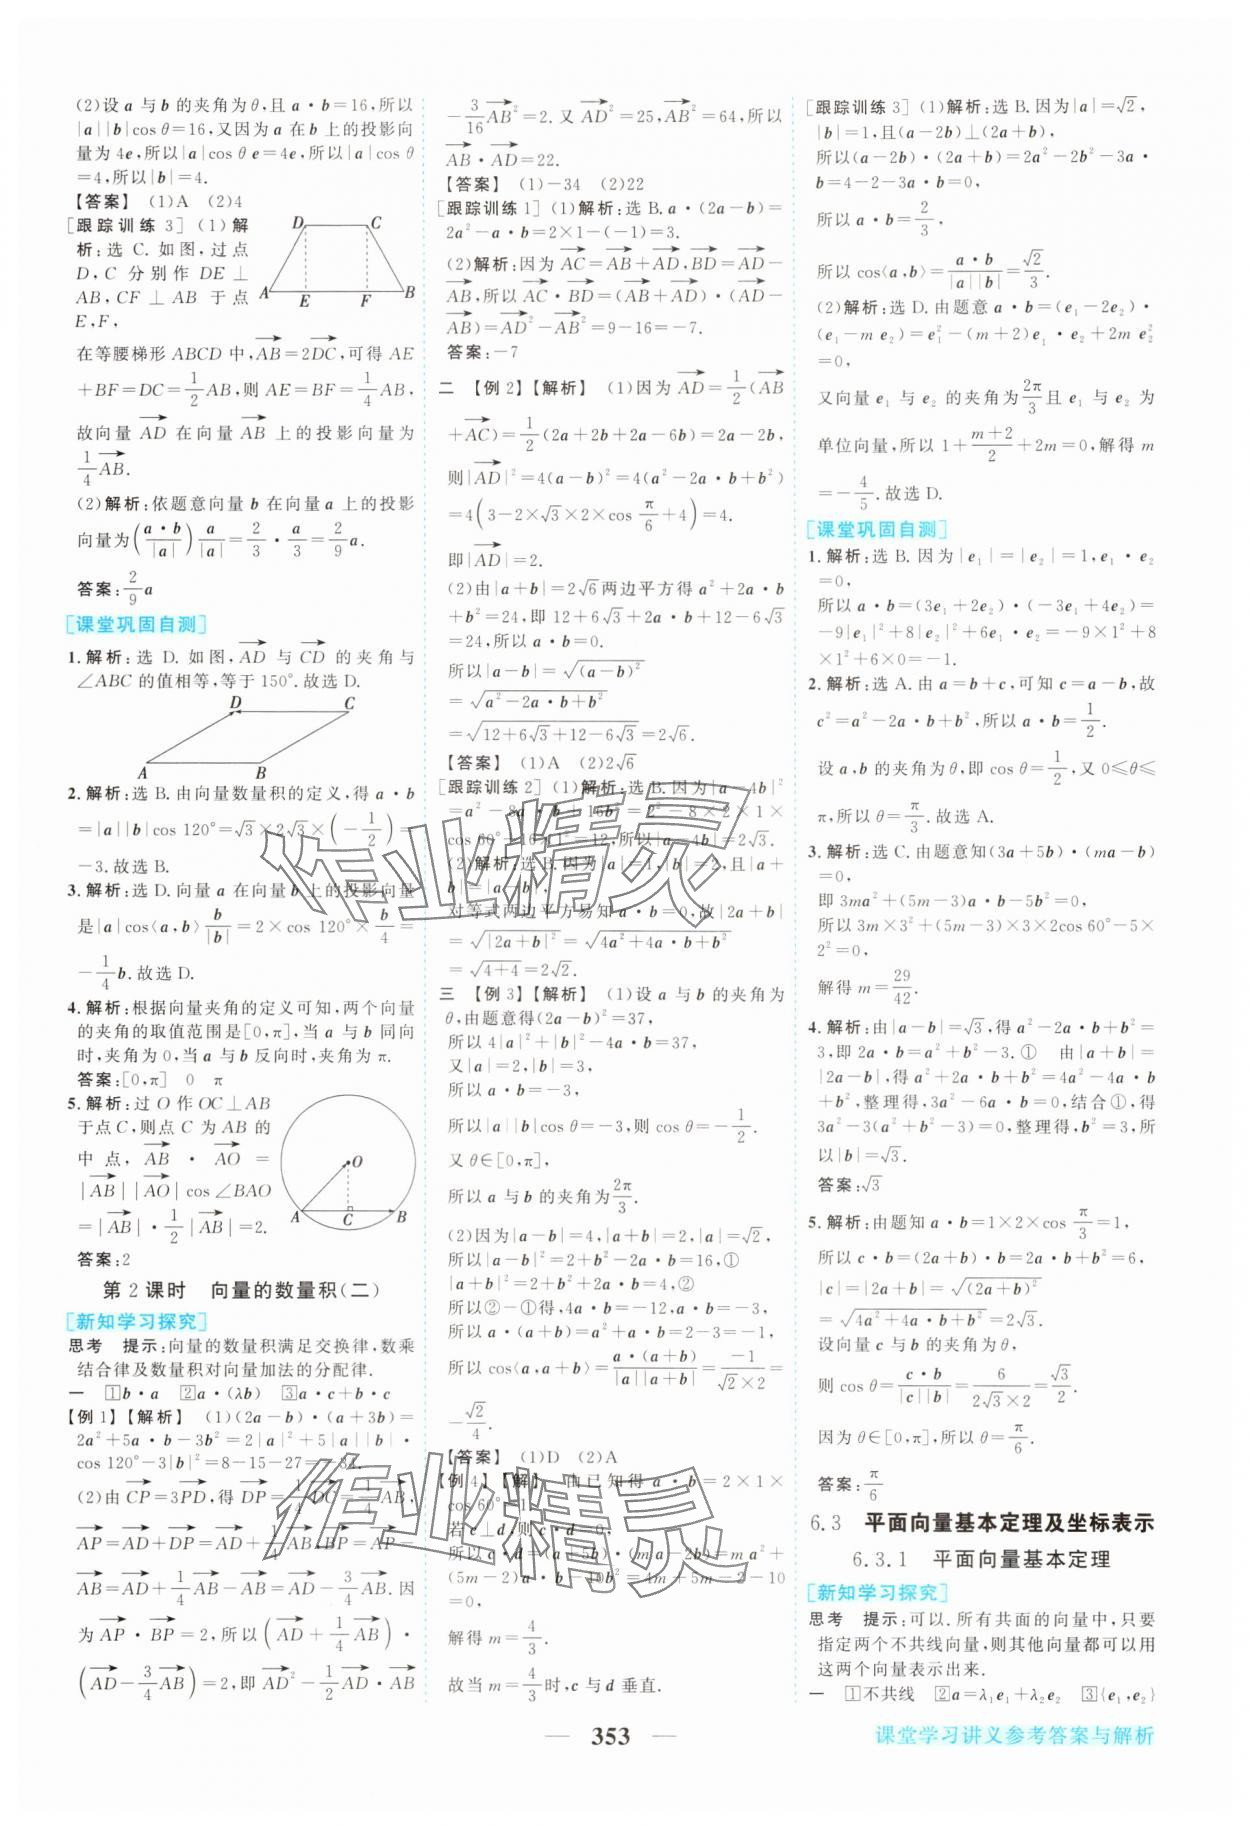 (2)设 a 与 b 的夹角为θ,且 a·b=16,所以
|a||b|cos θ=16,又因为 a 在 b 上的投影向
量为 4e,所以|a|cos θ e=4e,所以|a|cos θ
=4,所以|b|=4.
【答案】 (1)A (2)4
[跟踪训练 3] (1)解
析:选 C. 如图,过点
D,C 分别作 DE⊥
AB,CF⊥AB 于点
E,F,
D C
A E F B
在等腰梯形 ABCD 中,\overrightarrow{AB}=2\overrightarrow{DC},可得 AE
+BF=DC=\frac{1}{2}AB,则 AE=BF=\frac{1}{4}AB,
故向量 \overrightarrow{AD} 在向量 \overrightarrow{AB} 上的投影向量为
\frac{1}{4}\overrightarrow{AB}.
(2)解析:依题意向量 b 在向量 a 上的投影
向量为(\frac{a·b}{|a|})\frac{a}{|a|}=\frac{2}{3}·\frac{a}{3}=\frac{2}{9}a.
答案:\frac{2}{9}a
[课堂巩固自测]
1.解析:选 D. 如图,\overrightarrow{AD} 与 \overrightarrow{CD} 的夹角与
∠ABC 的值相等,等于 150°.故选 D.
D C
A B
2.解析:选 B.由向量数量积的定义,得 a·b
=|a||b|cos 120°=√3×2√3×(-\frac{1}{2})=
-3.故选 B.
3.解析:选 D.向量 a 在向量 b 上的投影向量
是|a|cos⟨a,b⟩\frac{b}{|b|}=2×cos 120°×\frac{b}{4}=
-\frac{1}{4}b.故选 D.
4.解析:根据向量夹角的定义可知,两个向量
的夹角的取值范围是[0,π],当 a 与 b 同向
时,夹角为 0,当 a 与 b 反向时,夹角为 π.
答案:[0,π] 0 π
5.解析:过 O 作 OC⊥AB
于点 C,则点 C 为 AB 的
中点,\overrightarrow{AB}·\overrightarrow{AO}=
|\overrightarrow{AB}||\overrightarrow{AO}|cos∠BAO
=|\overrightarrow{AB}|·\frac{1}{2}|\overrightarrow{AB}|=2.
O
A C B
答案:2
第 2 课时 向量的数量积(二)
[新知学习探究]
思考 提示:向量的数量积满足交换律,数乘
结合律及数量积对向量加法的分配律.
一 ①b·a ②a·(λb) ③a·c+b·c
【例 1】【解析】 (1)(2a-b)·(a+3b)=
2a²+5a·b-3b²=2|a|²+5|a||b|·
cos 120°-3|b|²=8-15-27=-34.
(2)由\overrightarrow{CP}=3\overrightarrow{PD},得\overrightarrow{DP}=\frac{1}{4}\overrightarrow{DC}=\frac{1}{4}\overrightarrow{AB},
\overrightarrow{AP}=\overrightarrow{AD}+\overrightarrow{DP}=\overrightarrow{AD}+\frac{1}{4}\overrightarrow{AB},\overrightarrow{BP}=\overrightarrow{AP}-
\overrightarrow{AB}=\overrightarrow{AD}+\frac{1}{4}\overrightarrow{AB}-\overrightarrow{AB}=\overrightarrow{AD}-\frac{3}{4}\overrightarrow{AB}.因
为\overrightarrow{AP}·\overrightarrow{BP}=2,所以(\overrightarrow{AD}+\frac{1}{4}\overrightarrow{AB})·
(\overrightarrow{AD}-\frac{3}{4}\overrightarrow{AB})=2,即\overrightarrow{AD}²-\frac{1}{2}\overrightarrow{AD}·\overrightarrow{AB}
-\frac{3}{16}\overrightarrow{AB}²=2. 又 \overrightarrow{AD}²=25,\overrightarrow{AB}²=64,所以
\overrightarrow{AB}·\overrightarrow{AD}=22.
【答案】 (1)-34 (2)22
[跟踪训练 1] (1)解析:选 B.a·(2a-b)=
2a²-a·b=2×1-(-1)=3.
(2)解析:因为 \overrightarrow{AC}=\overrightarrow{AB}+\overrightarrow{AD},\overrightarrow{BD}=\overrightarrow{AD}-
\overrightarrow{AB},所以 \overrightarrow{AC}·\overrightarrow{BD}=(\overrightarrow{AB}+\overrightarrow{AD})·(\overrightarrow{AD}-
\overrightarrow{AB})=\overrightarrow{AD}²-\overrightarrow{AB}²=9-16=-7.
答案:-7
二 【例 2】【解析】 (1)因为 \overrightarrow{AD}=\frac{1}{2}(\overrightarrow{AB}
+\overrightarrow{AC})=\frac{1}{2}(2a+2b+2a-6b)=2a-2b,
则|\overrightarrow{AD}|²=4(a-b)²=4(a²-2a·b+b²)
=4(3-2×√3×2×cos \frac{π}{6}+4)=4.
即|\overrightarrow{AD}|=2.
(2)由|a+b|=2√6两边平方得 a²+2a·b
+b²=24,即 12+6√3+2a·b+12-6√3
=24,所以 a·b=0.
所以|a-b|=\sqrt{(a-b)²}
=\sqrt{a²-2a·b+b²}
=\sqrt{12+6√3+12-6√3}=2√6.
【答案】 (1)A (2)2√6
[跟踪训练 2] (1)解析:选 B.因为|a-4b|²
=a²-8a·b+16b²=2²-8×2×1×
cos 60°+16×1²=12,所以|a-4b|=2√3.
(2)解析:选 B.因为|a|=1,|b|=2,且|a+
b|=|a-b|,
对等式两边平方易知 a·b=0,故|2a+b|
=\sqrt{|2a+b|²}=\sqrt{4a²+4a·b+b²}
=\sqrt{4+4}=2√2.
三 【例 3】【解析】 (1)设 a 与 b 的夹角为
θ,由题意得(2a-b)²=37,
所以 4|a|²+|b|²-4a·b=37,
又|a|=2,|b|=3,
所以 a·b=-3,
所以|a||b|cos θ=-3,则 cos θ=-\frac{1}{2}.
又 θ∈[0,π],
所以 a 与 b 的夹角为\frac{2π}{3}.
(2)因为|a-b|=4,|a+b|=2,|a|=√2,
所以|a-b|²=2+b²-2a·b=16,①
|a+b|²=2+b²+2a·b=4,②
所以②-①得,4a·b=-12,a·b=-3,
所以 a·(a+b)=a²+a·b=2-3=-1,
所以 cos⟨a,a+b⟩=\frac{a·(a+b)}{|a||a+b|}=\frac{-1}{√2×2}=
-\frac{√2}{4}.
【答案】 (1)D (2)A
【例 4】【解】 由已知得 a·b=2×1×
cos 60°=1.
若 c⊥d,则 c·d=0,
所以 c·d=(a+5b)·(ma-2b)=ma²+
(5m-2)a·b-10b²=4m+5m-2-10
=0,
解得 m=\frac{4}{3}.
故当 m=\frac{4}{3}时,c 与 d 垂直.
[跟踪训练 3] (1)解析:选 B.因为|a|=√2,
|b|=1,且(a-2b)⊥(2a+b),
所以(a-2b)·(2a+b)=2a²-2b²-3a·
b=4-2-3a·b=0,
所以 a·b=\frac{2}{3},
所以 cos⟨a,b⟩=\frac{a·b}{|a||b|}=\frac{√2}{3}.
(2)解析:选 D.由题意 a·b=(e₁-2e₂)·
(e₁-m e₂)=e₁²-(m+2)e₁·e₂+2m e₂²
=0,
又向量 e₁ 与 e₂ 的夹角为\frac{2π}{3}且 e₁ 与 e₂ 为
单位向量,所以 1+\frac{m+2}{2}+2m=0,解得 m
=-\frac{4}{5}.故选 D.
[课堂巩固自测]
1.解析:选 B. 因为|e₁|=|e₂|=1,e₁·e₂
=0,
所以 a·b=(3e₁+2e₂)·(-3e₁+4e₂)=
-9|e₁|²+8|e₂|²+6e₁·e₂=-9×1²+8
×1²+6×0=-1.
2.解析:选 A.由 a=b+c,可知 c=a-b,故
c²=a²-2a·b+b²,所以 a·b=\frac{1}{2}.
设 a,b 的夹角为θ,即 cos θ=\frac{1}{2},又 0≤θ≤
π,所以 θ=\frac{π}{3}.故选 A.
3.解析:选 C.由题意知(3a+5b)·(ma-b)
=0,
即 3ma²+(5m-3)a·b-5b²=0,
所以 3m×3²+(5m-3)×3×2cos 60°-5×
2²=0,
解得 m=\frac{29}{42}.
4.解析:由|a-b|=√3,得 a²-2a·b+b²=
3,即 2a·b=a²+b²-3.① 由|a+b|=
|2a-b|,得 a²+2a·b+b²=4a²-4a·b
+b²,整理得,3a²-6a·b=0,结合①,得
3a²-3(a²+b²-3)=0,整理得,b²=3,所
以|b|=√3.
答案:√3
5.解析:由题知 a·b=1×2×cos \frac{π}{3}=1,
所以 c·b=(2a+b)·b=2a·b+b²=6,
|c|=|2a+b|=\sqrt{(2a+b)²}
=\sqrt{4a²+4a·b+b²}=2√3.
设向量 c 与 b 的夹角为θ,
则 cos θ=\frac{c·b}{|c||b|}=\frac{6}{2√3×2}=\frac{√3}{2}.
因为 θ∈[0,π],所以 θ=\frac{π}{6}.
答案:\frac{π}{6}
6.3 平面向量基本定理及坐标表示
6.3.1 平面向量基本定理
[新知学习探究]
思考 提示:可以. 所有共面的向量中,只要
指定两个不共线向量,则其他向量都可以用
这两个向量表示出来.
一 ①不共线 ②a=λ₁e₁+λ₂e₂ ③{e₁,e₂}
作业精灵
作业精灵
353
课堂学习讲义参考答案与解析